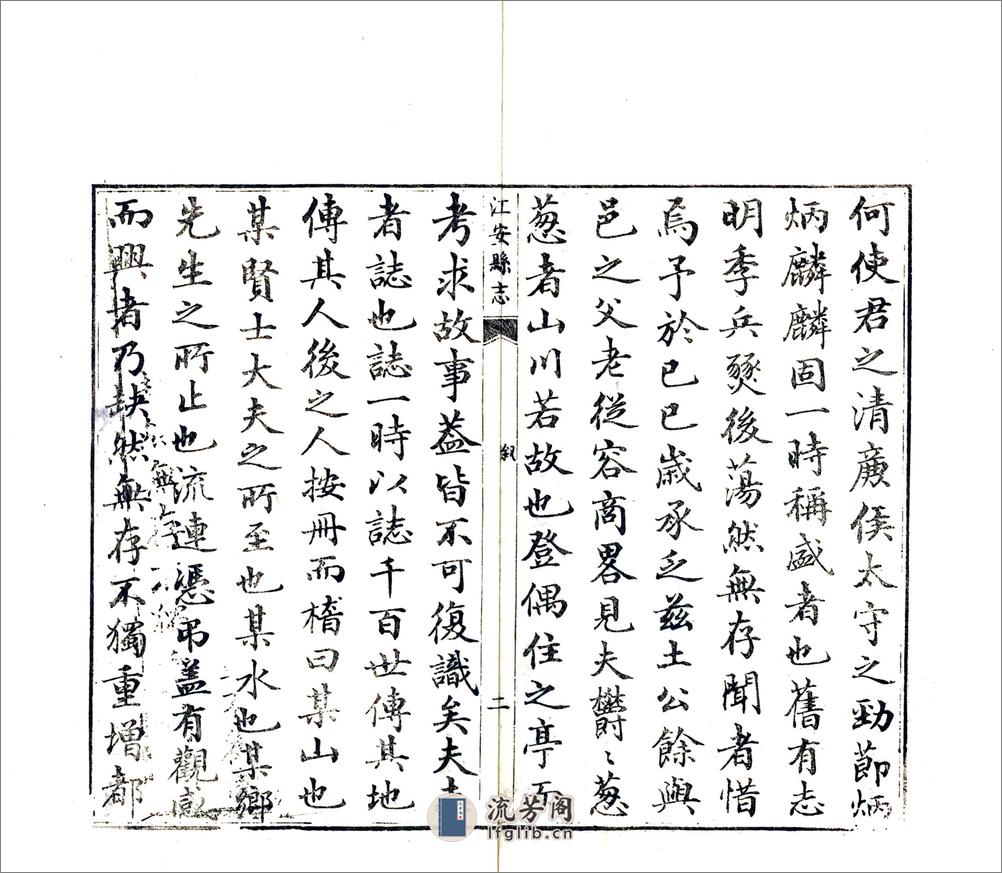 何使君之清廉侯太守之勁節炳
炳麟麟固一時稱盛者也舊有志
明季兵燹後蕩然無存聞者惜
焉予於己巳歲承乏茲土公餘與
邑之父老從容商畧見夫欝〻葱
葱者山川若故也登偶住之亭而
江安縣志
叙
二
考求故事葢皆不可復識矣夫志
者誌也誌一時以誌千百世傳其地
傳其人後之人按冊而稽曰某山也
某賢士大夫之所至也某水也某鄉
先生之所止也流連憑弔盖有觀感
而興者乃缺然無存不獨重增都
流芳阁
lfglib.cn